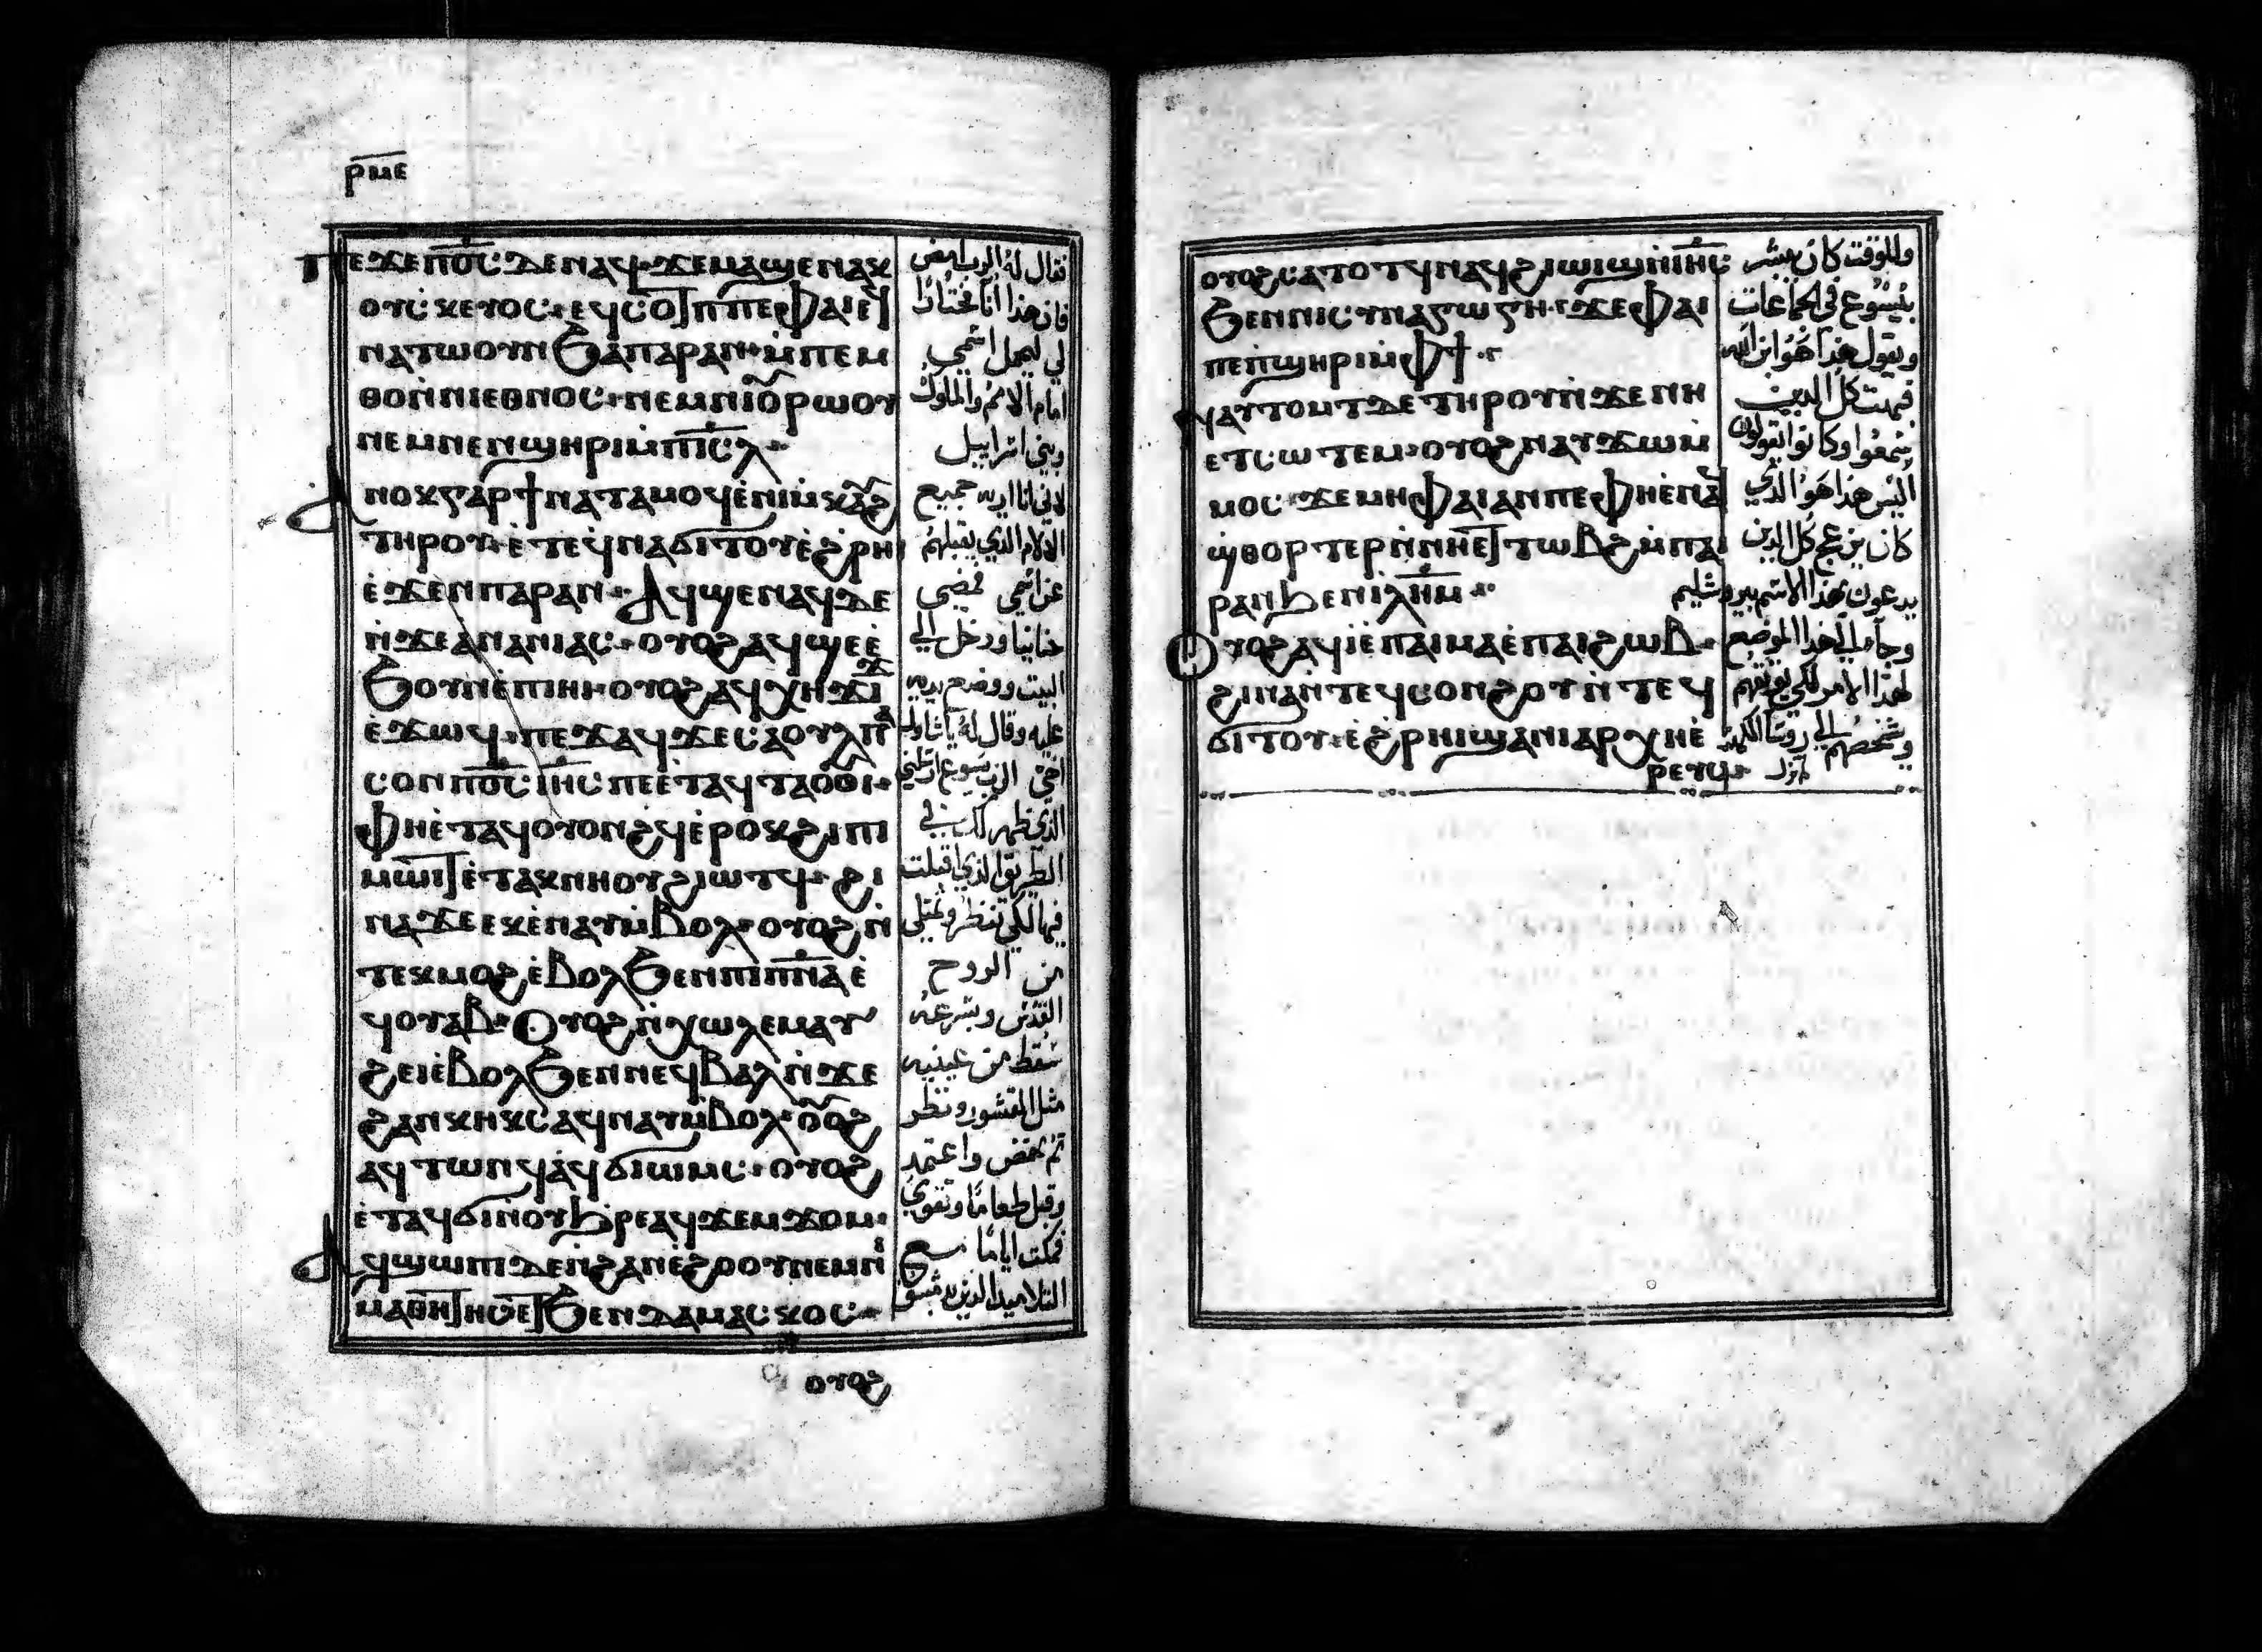 ⲣⲙⲉ
ⲡⲉϫⲉⲡⲟ̅ⲥ̅ ⲇⲉⲛⲁϥ ϫⲉⲙⲁϣⲉⲛⲁⲕ
ⲟⲩⲥⲕⲉⲩⲟⲥ ⲉϥⲥⲟⲧⲡ ⲡⲉ ⲫⲁⲓ ⲉϥ
ⲛⲁⲧⲱⲟⲩⲛ ϧⲁⲡⲁⲣⲁⲛ ⲙ̀ⲡⲉⲙ
ⲑⲟ ⲛ̀ⲛⲓⲉⲑⲛⲟⲥ ⲛⲉⲙⲛⲓⲟⲣⲱⲟⲩ
ⲛⲉⲙⲛⲉⲛϣⲏⲣⲓ ⲙ̀ⲡⲓ̅ⲥ̅ⲗ̅
ⲁⲛⲟⲕ ⲅⲁⲣ ϯⲛⲁⲧⲁⲙⲟϥ ⲉ̀ⲛⲓⲙ̀ⲕⲁϩ
ⲧⲏⲣⲟⲩ ⲉ̀ⲧⲉϥⲛⲁϭⲓⲧⲟⲩ ⲉ̀ϩ̀ⲣⲏⲓ
ⲉ̀ϫⲉⲛⲡⲁⲣⲁⲛ ⲁϥϣⲉⲛⲁϥ ⲇⲉ
ⲛ̀ϫⲉⲁⲛⲁⲛⲓⲁⲥ ⲟⲩⲟϩ ⲁϥϣⲉ ⲉ̀
ϧⲟⲩⲛ ⲉ̀ⲡⲓⲏⲓ ⲟⲩⲟϩ ⲁϥⲭⲏϫⲓϫ
ⲉ̀ϫⲱϥ ⲡⲉϫⲁϥ ϫⲉⲥⲁⲟⲩⲗ ⲡⲁ
ⲥⲟⲛ ⲡⲟ̅ⲥ̅ ⲓⲏ̅ⲥ̅ ⲡⲉ ⲉ̀ⲧⲁϥⲧⲁⲟⲩⲟⲓ
ⲫⲏ ⲉ̀ⲧⲁϥⲟⲩⲟⲛϩϥ ⲉ̀ⲣⲟⲕ ϩⲓⲡⲓ
ⲙⲱⲓⲧ ⲉ̀ⲧⲁⲕⲛⲏⲟⲩ ϩⲓⲱⲧϥ ϩⲓ
ⲛⲁ ϫⲉ ⲉⲕⲉ̀ⲛⲁⲩ ⲙ̀ⲃⲟⲗ ⲟⲩⲟϩ ⲛ̀
ⲧⲉⲕⲙⲟϩ ⲉ̀ⲃⲟⲗ ϧⲉⲛⲡⲓⲡ̅ⲛ̅ⲁ̅ ⲉ̀
ϥⲟⲩⲁⲃ ⲟⲩⲟϩ ⲛ̀ⲭⲱⲗⲉⲙ ⲁⲩ
ϩⲉⲓ ⲉ̀ⲃⲟⲗ ϧⲉⲛⲛⲉϥⲃⲁⲗ ⲛ̀ϫⲉ
ϩⲁⲛⲕⲏⲕⲥ ⲁϥⲛⲁⲩ ⲙ̀ⲃⲟⲗ ⲟⲩⲟϩ
ⲁϥⲧⲱⲛϥ ⲁϥϭⲓⲱⲙⲥ ⲟⲩⲟϩ
ⲉ̀ⲧⲁϥϭⲓ ⲛ̀ⲟⲩϧⲣⲉ ⲁϥϫⲉⲙϫⲟⲙ
ⲁϥϣⲱⲡⲓ ⲇⲉ ⲛ̀ϩⲁⲛⲉ̀ϩⲟⲟⲩ ⲛⲉⲙⲛⲓ
ⲙⲁⲑⲏⲧⲏⲥ ⲉⲧ ϧⲉⲛⲇⲁⲙⲁⲥⲕⲟⲥ
ⲟⲩⲟϩ
فقال له الرب امض
فان هذا انا مختارا
لي ليحمل اسمي
امام الامم والملوك
وبني اسراييل
لاني انا اريه جميع
الالام الذي يقبلهم
عن اسمي فمضي
حنانيا ودخل الي
البيت ووضع يديه
عليه وقال له يا شاول
اخي الرب يسوع ارسلني
الذي ظهر لك في
الطريق الذي اقبلت
فيها لكي تنظر وتمتلي
من الروح
القدس وبسرعه
سقط من عينيه
مثل القشور ونظر
ثم نهض واعتمد
وقبل طعاما وتقوي
فمكث اياما مع
التلاميد الذين بدمشق
ⲟⲩⲟϩ ⲥⲁⲧⲟⲧϥ ⲛⲁϥϩⲓⲱⲓϣ ⲛ̀ⲓⲏ̅ⲥ̅
ϧⲉⲛⲛⲓⲥⲩⲛⲁⲅⲱⲅⲏ ϫⲉ ⲫⲁⲓ
ⲡⲉ ⲡϣⲏⲣⲓ ⲙ̀ⲫϯ
ⲛⲁⲩⲧⲟⲙⲧ ⲇⲉ ⲧⲏⲣⲟⲩ ⲛ̀ϫⲉⲛⲏ
ⲉⲧⲥⲱⲧⲉⲙ ⲟⲩⲟϩ ⲛⲁⲩϫⲱ ⲙ̀
ⲙⲟⲥ ϫⲉ ⲙⲏ ⲫⲁⲓ ⲁⲛ ⲡⲉ ⲫⲏ ⲉ̀ⲛⲁϥ
ϣ̀ⲑⲟⲣⲧⲉⲣ ⲛ̀ⲛⲏ ⲉⲧⲧⲱⲃϩ ⲙ̀ⲡⲁⲓ
ⲣⲁⲛ ϧⲉⲛⲓ̅ⲗ̅ⲏ̅ⲙ̅
ⲟⲩⲟϩ ⲁϥⲓ̀ ⲉ̀ⲡⲁⲓⲙⲁ ⲉ̀ⲡⲁⲓϩⲱⲃ
ϩⲓⲛⲁ ⲛ̀ⲧⲉϥⲥⲟⲛϩⲟⲩ ⲛ̀ⲧⲉϥ
ϭⲓⲧⲟⲩ ⲉ̀ϩ̀ⲣⲏⲓ ϣⲁⲛⲓⲁⲣⲭⲏⲉ̀
ⲣⲉⲩⲥ
وللوقت كان يبشر
بيسوع في الجماعات
ويقول هذا هو ابن الله
فبهت كل الذين
سمعوا وكانوا يقولون
اليس هذا هو الذي
كان يزعج كل الذين
يدعون بهذا الاسم بيروشليم
وجاء الي هذا الموضع
لهذا الامر لكي يوثقهم
وشخصهم الي روسا الكهنة